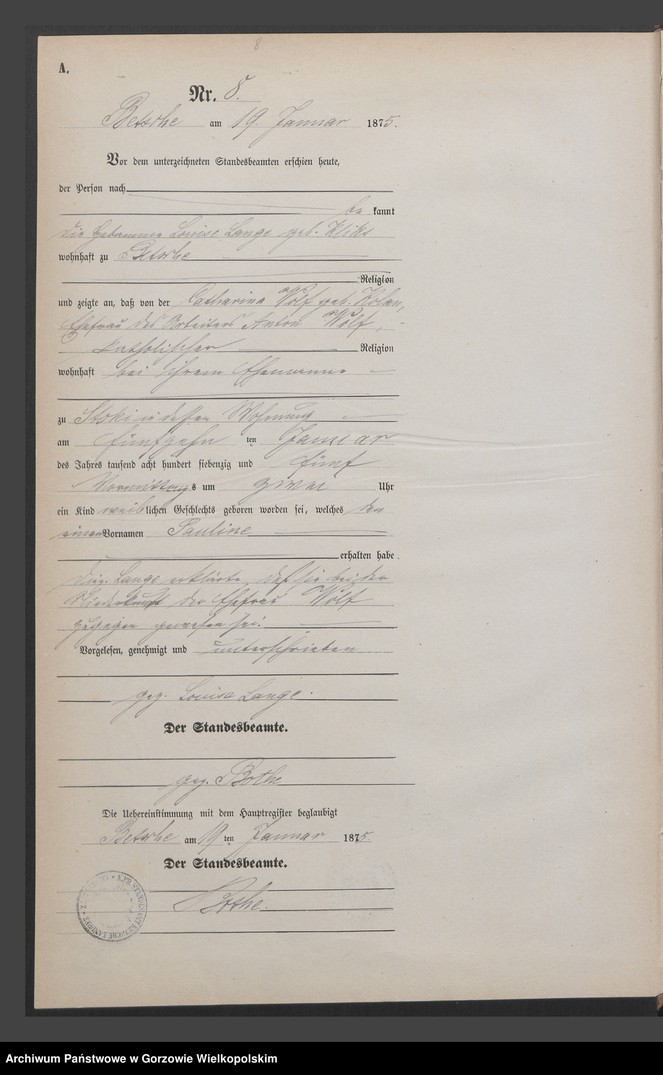 8
A.
Nr. 8.
Betsche am 19. Januar 1875.
Vor dem unterzeichneten Standesbeamten erschien heute,
der Person nach
be kannt
die Hebamme Louise Lange geb.
wohnhaft zu Betsche
Religion
und zeigte an, daß von der Catharina Wolf geb.
Ehefrau des Arbeiters Anton Wolf,
katholischer Religion
wohnhaft bei ihrem Ehemanne
zu Stoki in dessen Wohnung
am fünfzehn ten Januar
des Jahres tausend acht hundert siebenzig und fünf
Vormittags um zwei Uhr
ein Kind weiblichen Geschlechts geboren worden sei, welches den
einen Vornamen Pauline
erhalten habe.
Die Lange erklärte, daß sie bei der
Niederkunft der Ehefrau Wolf
zugegen gewesen sei.
Vorgelesen, genehmigt und unterschrieben
gez. Louise Lange.
Der Standesbeamte.
gez. Bothe
Die Uebereinstimmung mit dem Hauptregister beglaubigt
Betsche am 19 ten Januar 1875.
Der Standesbeamte.
Bothe.
Archiwum Państwowe w Gorzowie Wielkopolskim